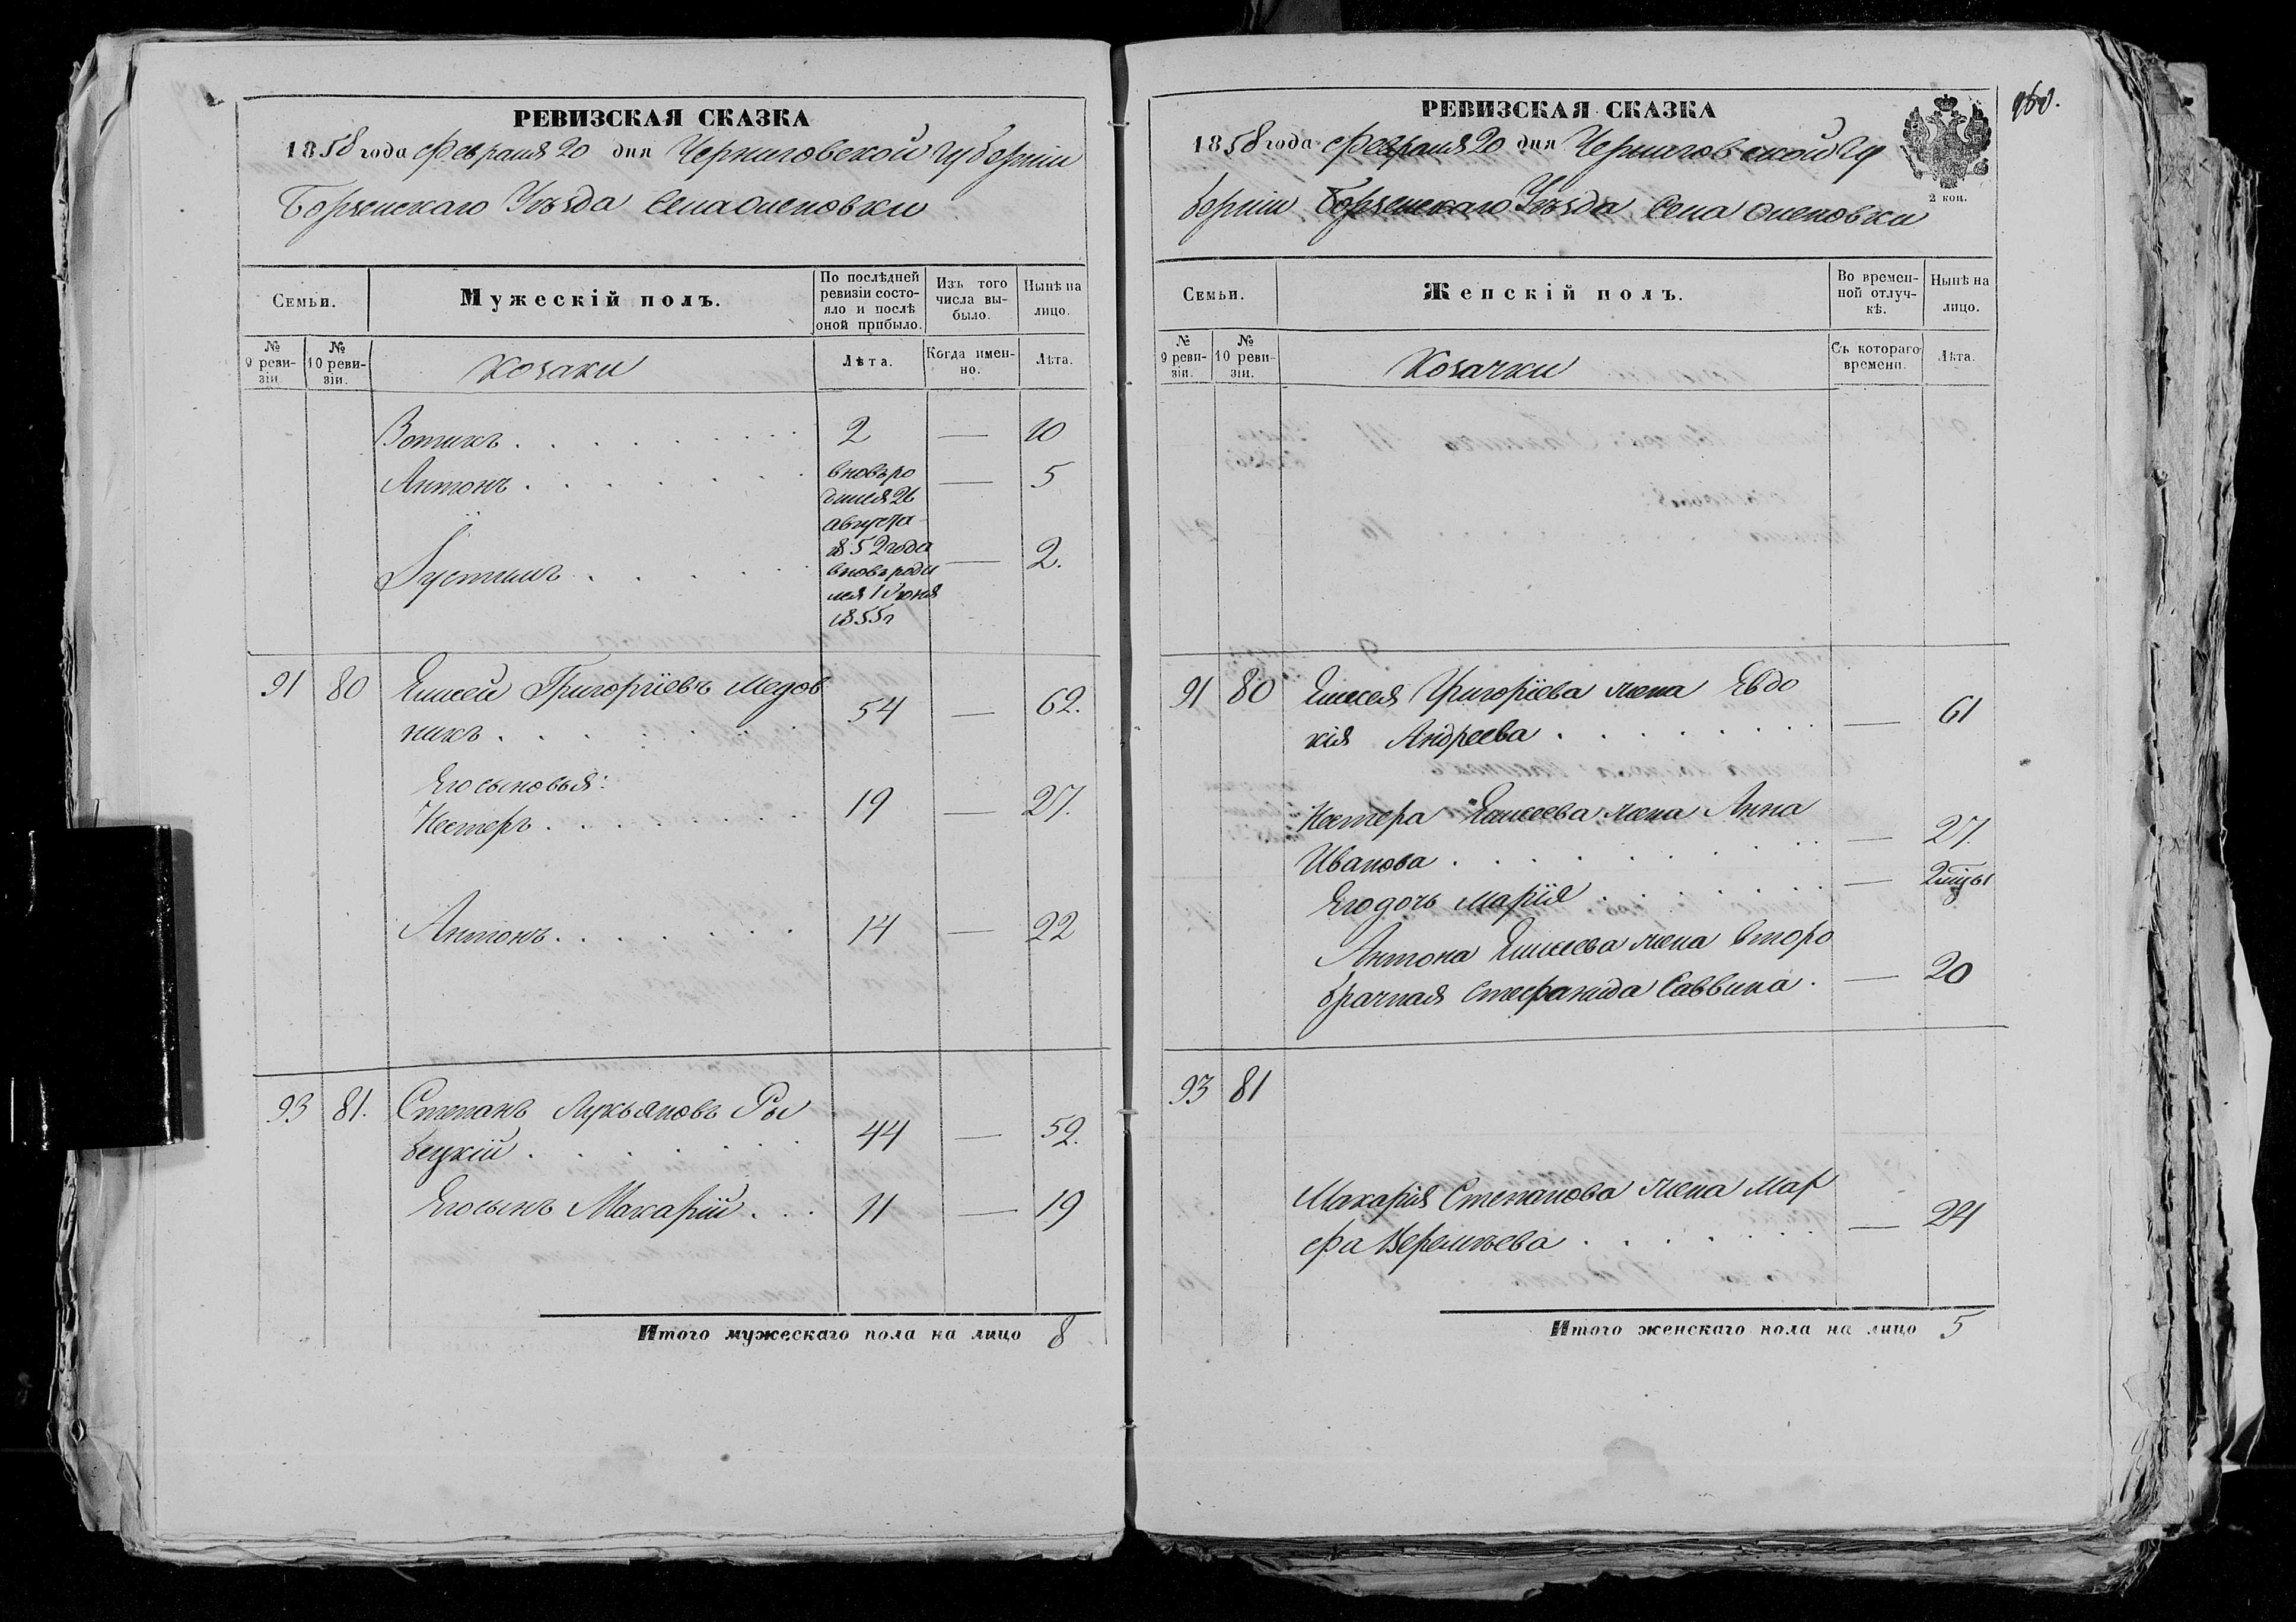 РЕВИЗСКАЯ СКАЗКА
1858 года Февраля 20 дня Черниговской Губерніи
Борзенскаго Уѣзда Села Оленовки
Семьи.
Мужескій полъ.
По послѣдней ревизіи состояло и послѣ оной прибыло.
Изъ того числа выбыло.
Нынѣ на лицо.
№ 9 ревизіи.
№ 10 ревизіи.
Козаки
Лѣта.
Когда именно.
Лѣта.
Вотихъ 2 — 10
Антонъ вновь родился 26 августа 1852 года — 5
Іустинъ вновь родился 1 Іюня 1855 г — 2.
91 80 Елисей Григоріевъ Медов
никъ 54 — 62.
Его сыновья:
Нестеръ 19 — 27.
Антонъ 14 — 22
93 81. Степанъ Лукьяновъ Ры
бецкій 44 — 52.
Его сынъ Макарій 11 — 19
Итого мужескаго пола на лицо 8
160.
РЕВИЗСКАЯ СКАЗКА
1858 года Февраля 20 дня Черниговской Гу
берніи Борзенскаго Уѣзда, Села Оленовки
2 коп.
Семьи.
Женскій полъ.
Во временной отлучкѣ.
Нынѣ на лицо.
№ 9 ревизіи.
№ 10 ревизіи.
Козачки
Съ котораго времени.
Лѣта.
91 80 Елисея Григоріева жена Евдо
кія Андреева — 61
Нестера Елисеева жена Анна
Иванова — 27.
Его дочь Марія — 2 м͠цы
Антона Елисеева жена второ
брачная Стефанида Саввина — 20
93 81
Макарія Степанова жена Мар
фа Веремѣева — 24
Итого женскаго пола на лицо 5